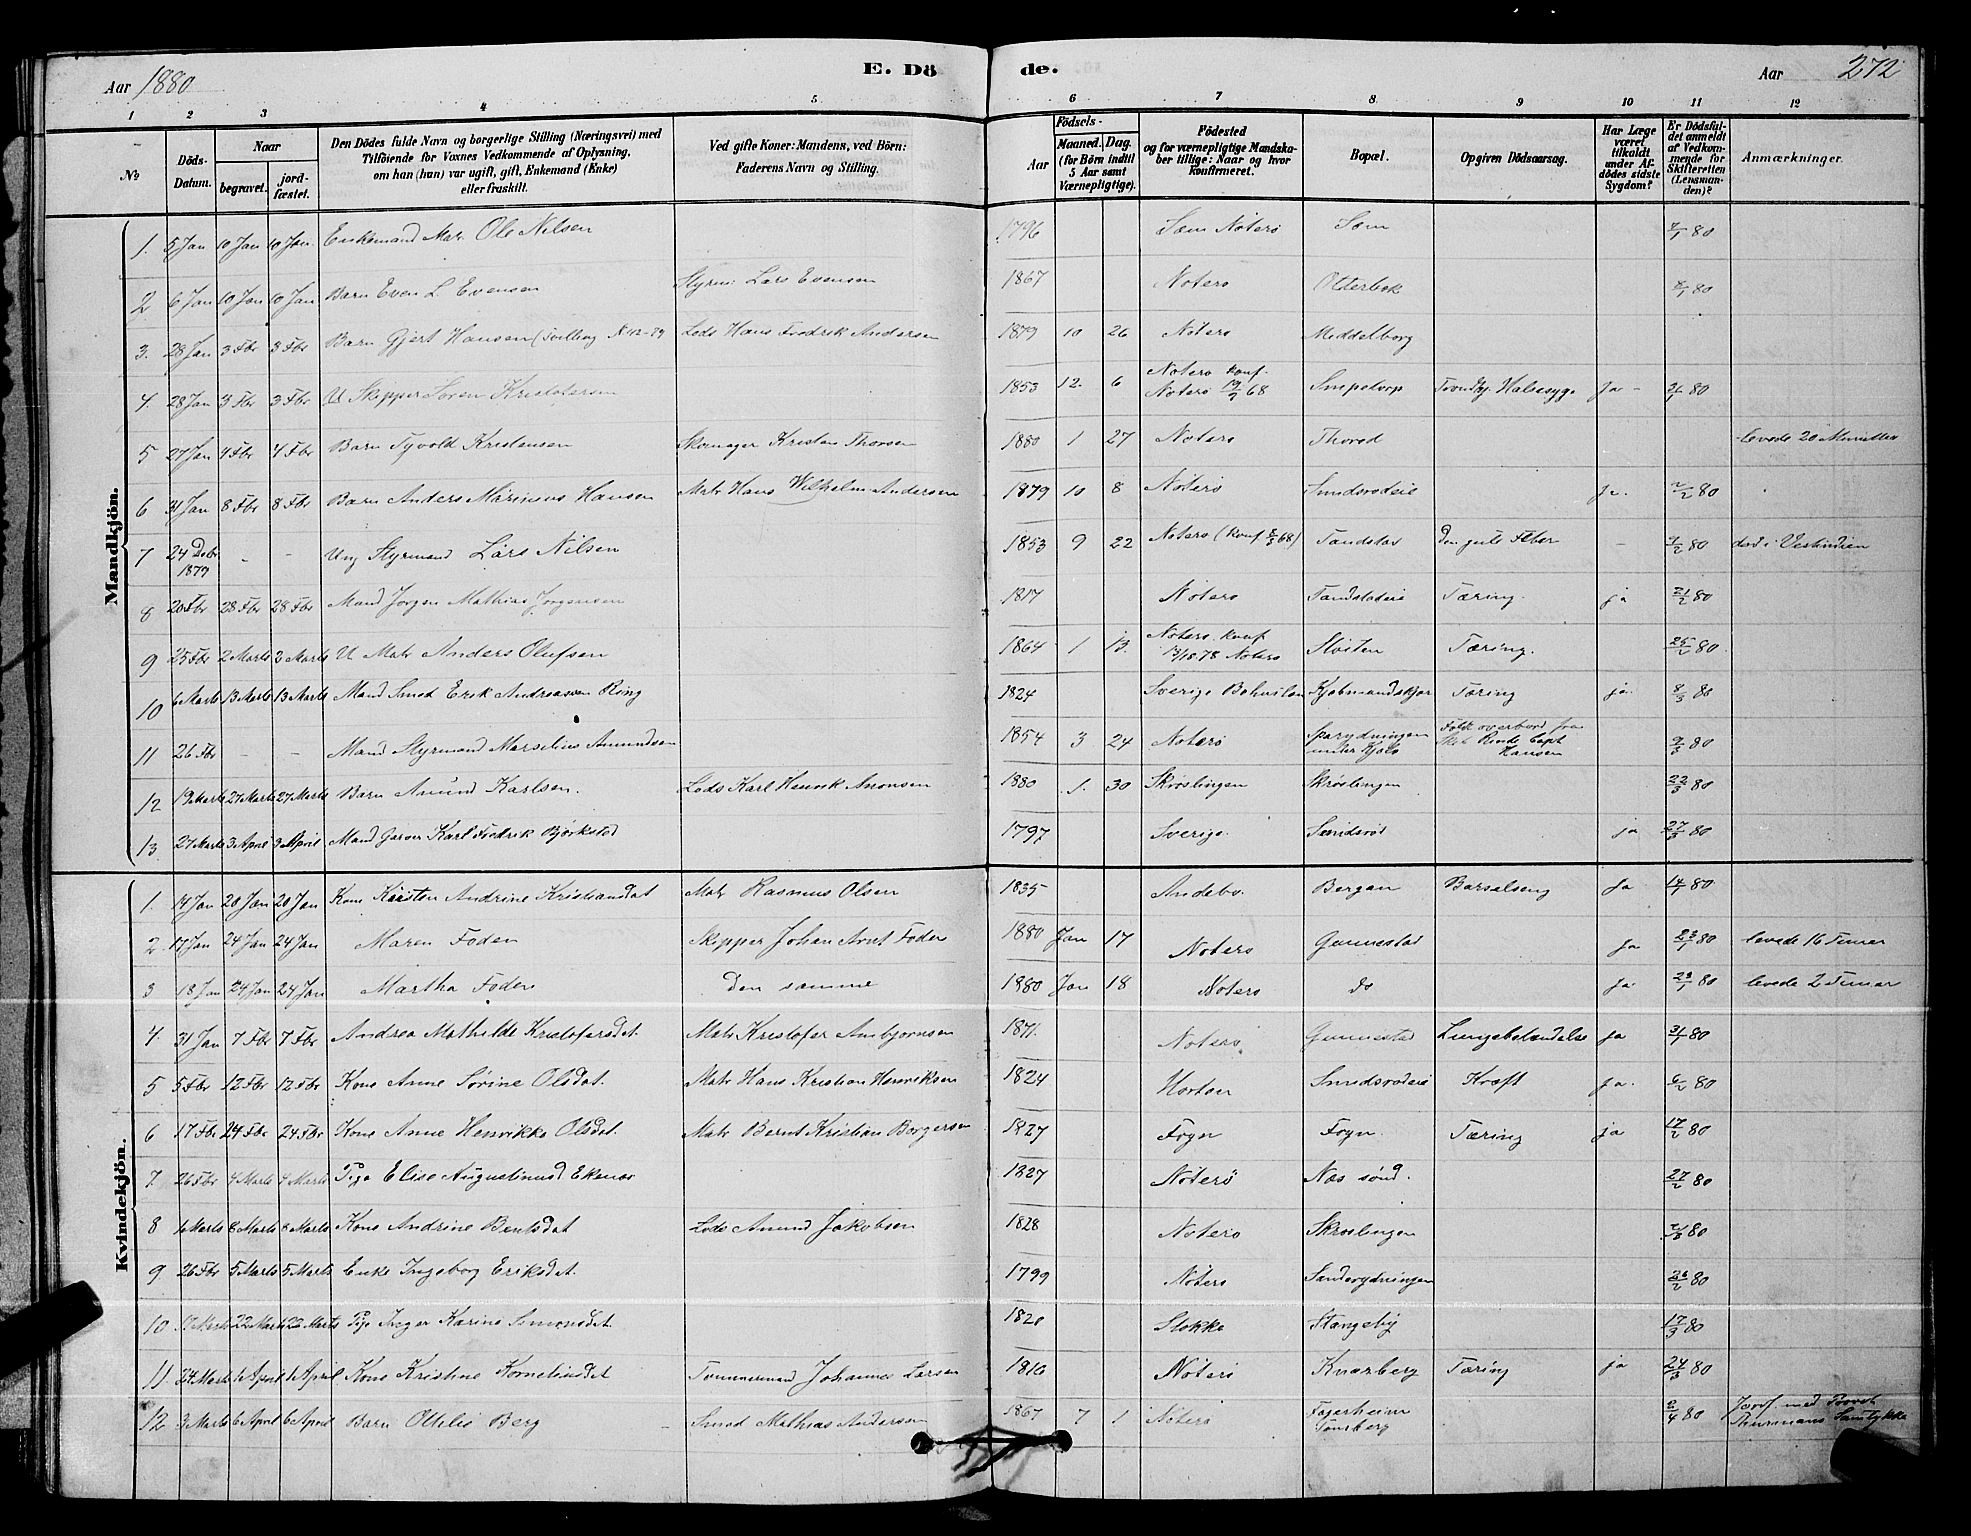 Aar 1880
E. Dö
de.
Aar
272
1 2 3 4 5 6 7 8 9 10 11 12
№
Döds-Datum.
Naar
begravet.
jord-fæstet.
Den Dödes fulde Navn og borgerlige Stilling (Næringsvei) med
Tilföiende for Voxnes Vedkommende af Oplysning,
om han (hun) var ugift, gift, Enkemand (Enke)
eller fraskilt.
Ved gifte Koner: Mandens, ved Börn:
Faderens Navn og Stilling.
Födsels-
Aar
Maaned. Dag.
(for Börn indtil
5 Aar samt
Værnepligtige).
Födested
og for værnepligtige Mandska-
ber tillige: Naar og hvor
konfirmeret.
Bopæl.
Opgiven Dödsaarsag.
Har Læge
været
tilkaldt
under Af-
dödes sidste
Sygdom?
Er Dödsfal-
det anmeldt
af Vedkom-
mende for
Skifteretten
(Lensman-
den)?
Anmærkninger.
Mandkjön.
1. 5 Jan 10 Jan 10 Jan Enkemand Matr. Ole Nilsen 1796 Sæm Nøterø Sæm 7/1 80
2 6 Jan 10 Jan 10 Jan Barn Even L. Evensen Styrm: Lars Evensen 1867 Nøterø Otterbek 8/1 80
3. 28 Jan 3 Fbr 3 Fbr Barn Gjert Hansen (Tvilling N 12-79 Lods Hans Fredrik Andersen 1879 10 26 Nøterø Meddelborg
4. 28 Jan 3 Fbr 3 Fbr U Skipper Søren Kristofersen 1853 12. 6 Nøterø Konf. Nøterø 19/7 68 Smpetorp Halsesyge Ja - 80
5 27 Jan 4 Fbr 4 Fbr Barn Tyvold Kristensen Skomager Kristen Thorsen 1880 1 27 Nøterø Thorød levede 20 Minutter
6 31 Jan 8 Fbr 8 Fbr Barn Anders Marinius Hansen Matr Hans Wilhelm Andersen 1879 10 8 Nøterø Smidsrødeie ja. 2/2 80
7 24 Debr 1879 - - Ung Styrmand Lars Nilsen 1853 9 22 Nøterø (Konf 68) Tandstad den gule Feber - 7/2 80 død i Vestindien
8 20 Fbr 28 Fbr 28 Fbr Mand Jørgen Mathias Jørgensen 1817 Nøterø Tandstadeie Tæring. ja 21/2 80
9 25 Fbr 2 Marts 2 Marts U Matr Anders Olufsen 1864 1 13. Nøterø. Konf 1878 Nøterø Støiten Tæring. 25/2 80.
10 6 Marts 13 Marts 13 Marts Mand Smed Erik Andreassen Ring 1824 Sverige Bohuslen Kjøbmandskjær Tæring ja. 8/3 80
11 26 Fbr - - Mand Styrmand Marselius Amundsen 1854 3 24 Nøterø under Kjøle Falt overbord fra Skib Rinde Capt Hansen 9/3 80
12 19 Marts 27 Marts 27 Marts Barn Amund Karlsen. Lods Karl Henrik Amonsen 1880 1. 30 Skrøslingen Skrøslingen 22/3 80
13. 27 Marts 3 April 3 April Mand Garver Karl Fredrik Bjørkstad 1797 Sverige. Smidsrød ja 27/3 80
Kvindekjön.
1. 14 Jan 20 Jan 20 Jan Kone Kirsten Andrine Kristiansdat Matr Rasmus Olsen 1835 Andebo. Bergan Barselseng Ja 14/1 80
2. 17 Jan 24 Jan 24 Jan Maren Foden Skipper Johan Arnt Foden 1880 Jan 17 Nøterø Gunnestad Ja 23/1 80 levede 16 Timer
3 18 Jan 24 Jan 24 Jan Martha Foden Den samme 1880 Jan 18 Nøterø do Ja 23/1 80 levede 2 Timer
4. 31 Jan 7 Fbr 7 Fbr Andrea Mathilde Kristofersdt. Matr Kristofer Ambjørnsen 1871. Nøterø Gunnestad Lungebetændelse ja 31/1 80
5. 5 Fbr 12 Fbr 12 Fbr Kone Anne Sørine Olsdat. Matr Hans Kristian Henriksen 1824 Horten Smidsrødeie Kræft ja. 6/2 80
6 17 Fbr 24 Fbr 24 Fbr Kone Anne Henrikke Olsdat. Matr Bernt Kristian Borgersen 1827 Føyn Føyn. Tæring ja 17/2 80
7. 26 Fbr 4 Marts 4 Marts Pige Elise Augustinusd Ekenes 1827 Nøterø Næs sønd. 27/2 80
8 1 Marts 8 Marts 8 Marts Kone Andrine Bentsdat Lods Amund Jakobsen 1828 Nøterø Skrøslingen 80
9 26 Fbr 5 Marts 5 Marts Enke Ingeborg Eriksdat. 1799 Nøterø Sanderydningen 26/2 80
10 17 Marts 22 Marts 22 Marts Pige Inger Karine Simonsdat. 1820 Stokke Stangeby 17/3 80
11 24 Marts 1 April 1 April Kone Kristine Korneliusdat Tømmermand Johannes Larsen 1816 Nøterø Knarberg Tæring ja 24/3 80
12 3 Marts 6 April 6 April Barn Othilie Berg Smed Mathias Andersen 1867 7 1 Nøterø Fagerheim Tønsberg 2/4 80 Jordf. med Provst Thurmans Samtykke